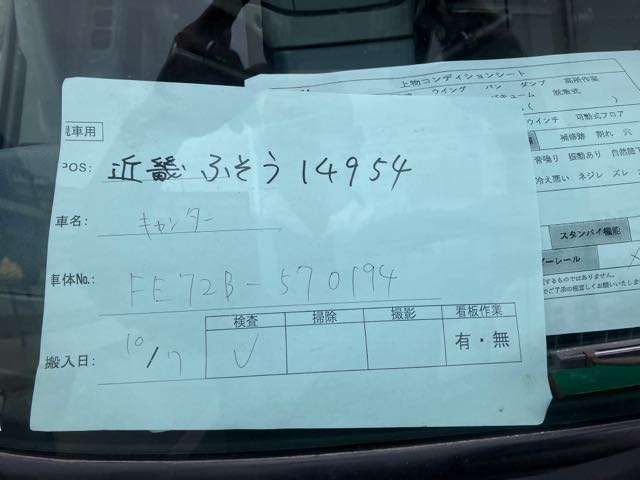 現車用
POS: 近畿ふそう 14954
車名: キャンター
車体No.: FE72B-570194
検査 掃除 撮影 看板作業
搬入日: 10/7 ✓ 有・無
上物コンディションシート
ウイング バン ダンプ 高所作業
キューム 脱着式
( )
ウインチ 可動式フロア
補修跡 割れ 穴
音鳴り 振動あり 自然降下
冷え悪い ネジレ ズレ
スタンバイ機能
ーレール
するものではありません。
でご了承の程宜しくお願いいたしま